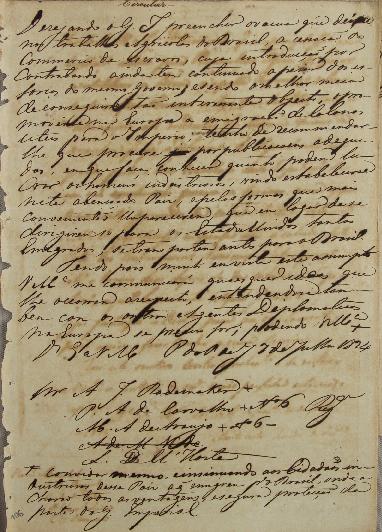 Circular
Desejando o G. I. preencher o vacuo que deixa
nos trabalhos agricolas do Brasil, a cessação do
Commercio de Escravos, cuja introducção por
Contrabando ainda tem continuado apezar dos es-
forços do mesmo governo; e sendo o melhor meio
de conseguir tão interessante objecto, o pro-
mover na Europa a emigração de Colonos
uteis para o Imperio de recommendar
lhe que procure por publicações adequa-
das, em que faça conhecer quanto podem lu-
crar os homens industriosos, vindo estabelecer-se
neste abençoado Paiz, e pelas formas que mais
convenientes lhe parecerem, que em lugar de se
dirigirem só para os Estados Unidos tantos
Emigrados, se transportem antes para o Brasil.
Tendo pois muito em vista este assumpto
V. Mce. me communicará quaesquer ideas que
lhe occorrão a respeito, entendendo-se tam-
bem com os outros Agentes Diplomaticos
na Europa se preciso for, podendo V. Mce. +
Ds. Ge. a V. Mce. P. do R. de J. de Julho 1834
Snr. A. J. Rademaker +
P. A. de Carvalho + No 6
M. A. de Araujo + No 6 -
L. Monte
+ convidar mesmo, ensinuando aos Cidadãos in-
dustriosos desse Paiz a emigrar pa. o Brasil, onde a-
charão todas as vantagens, e segura protecção da
parte do G. Imperial